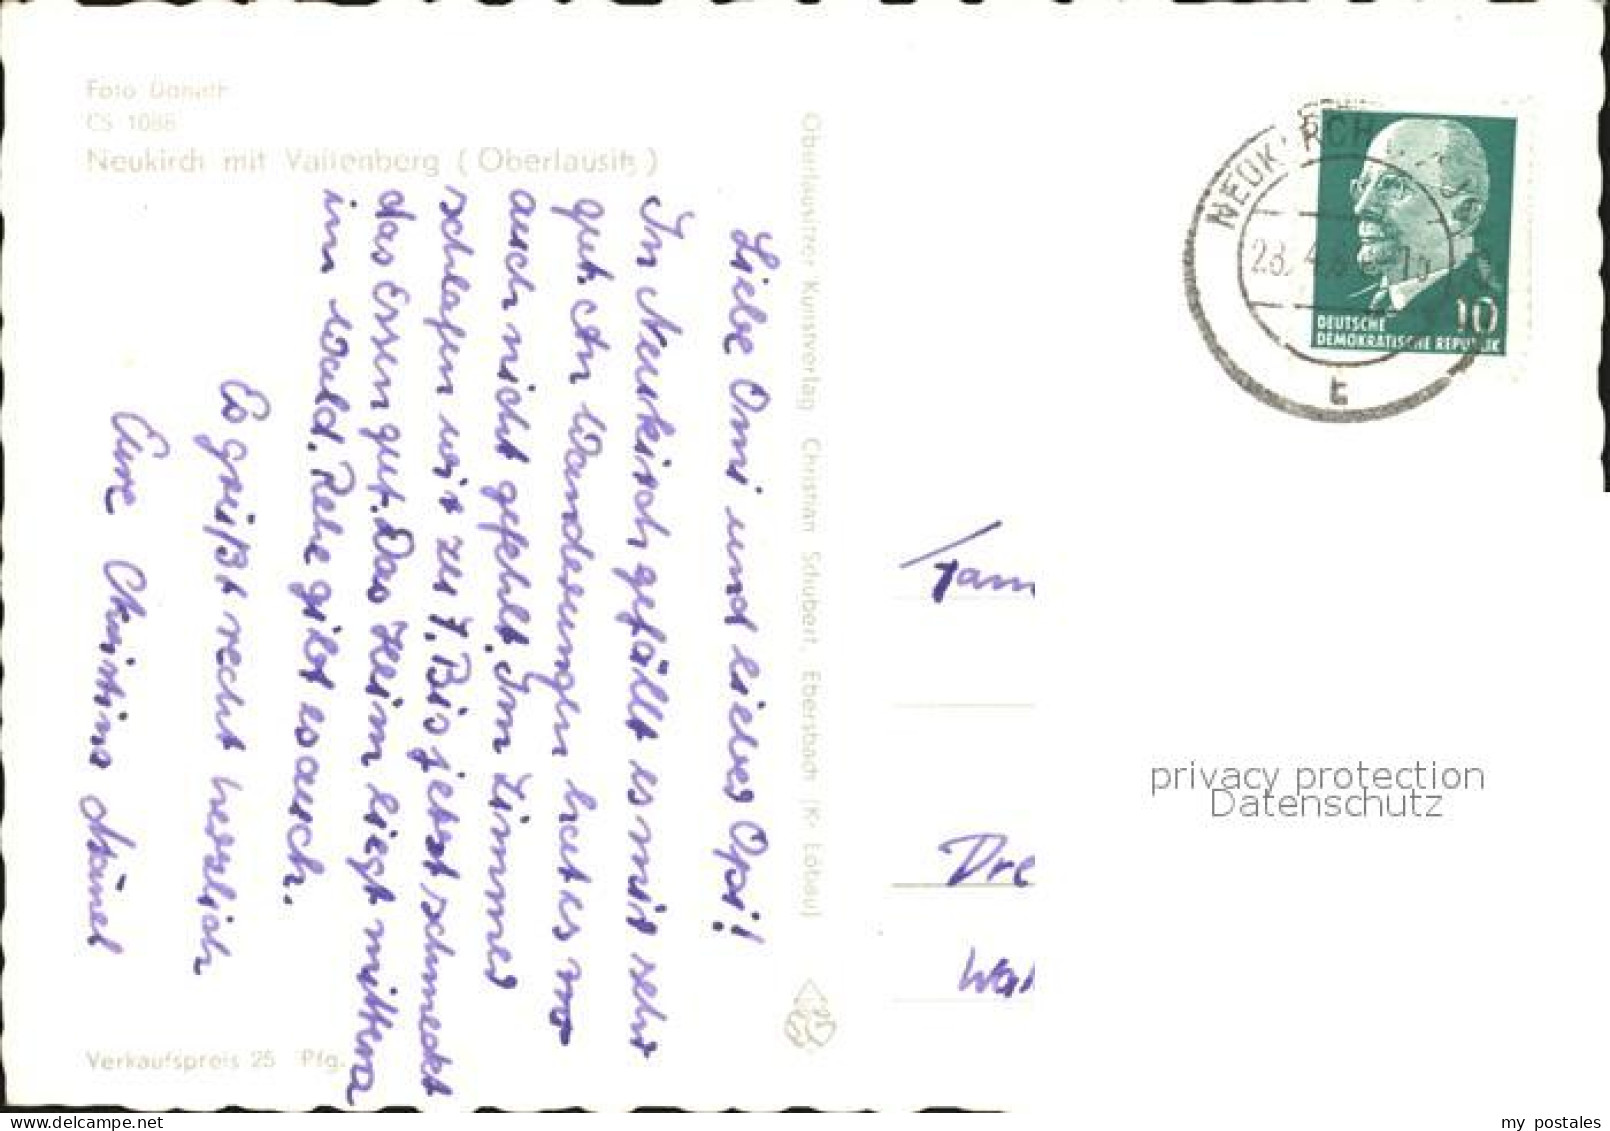 Foto Donath
CS 1086
Neukirch mit Valtenberg (Oberlausitz)
Liebe Omi und lieber Opi!
In Neukirch gefällt es mir sehr
gut. An Wanderungen hat es uns
auch nicht gefehlt. Im Zimmer
schlafen wir zu 7. Bis jetzt schmeckt
das Essen gut. Das Heim liegt mitten
im Wald. Rehe gibt es auch.
Es grüßt recht herzlich
Eure Christine
Verkaufspreis 25 Pfg.
Oberlausitzer Kunstverlag Christian Schubert, Ebersbach (Kr. Löbau)
NEUKIRCH
28. 4. 
t
10
DEUTSCHE
DEMOKRATISCHE REPUBLIK
Fam
Dre
privacy protection
Datenschutz
my postales